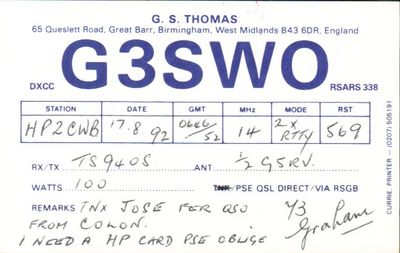 G. S. THOMAS
65 Queslett Road, Great Barr, Birmingham, West Midlands B43 6DR, England
DXCC G3SWO RSARS 338
STATION DATE GMT MHz MODE RST
HP2CWB 17.8.92 0646/52 14 2x RTTY 569
RX/TX TS940S ANT 1/2 G5RV.
WATTS 100 PSE QSL DIRECT/VIA RSGB
REMARKS TNX JOSE FER QSO 73
FROM COLON. Graham
I NEED A HP CARD PSE OBLIGE
CURRIE, PRINTER — (0207) 505191